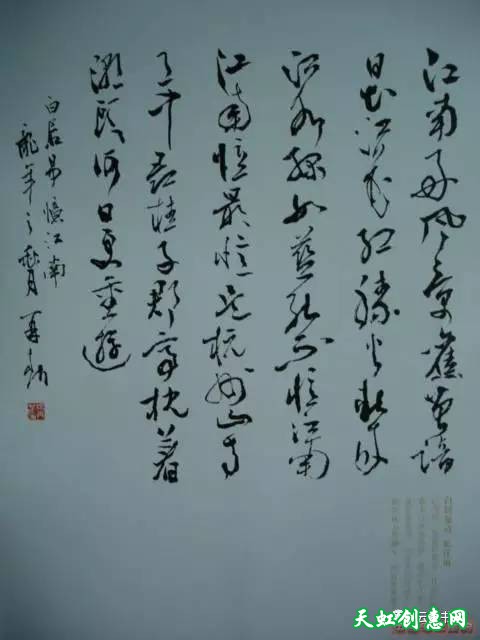 江南好风景舊曾谙
日出江花红胜火春来
江水绿如蓝能不忆江南
江南忆最忆是杭州山寺
月中寻桂子郡亭枕上看
潮头何日更重游
白居易憶江南
龍年之
天虹创意网